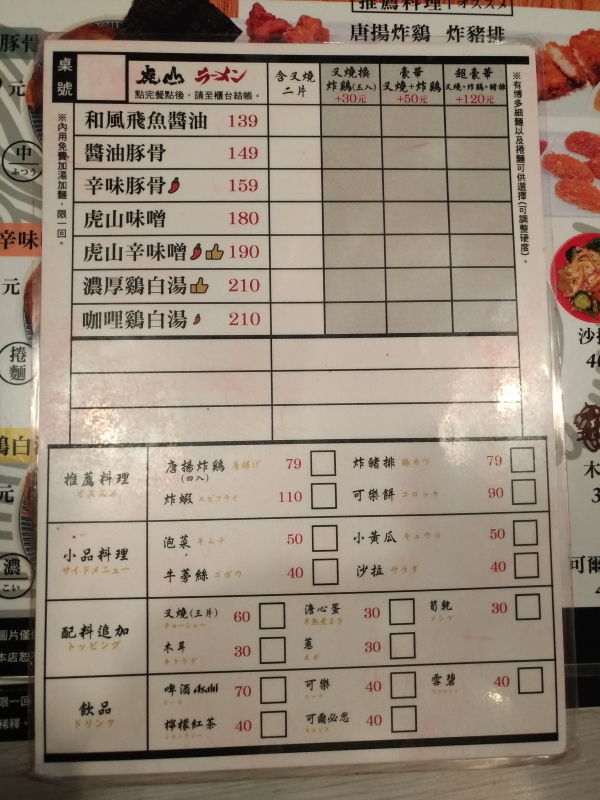 推薦料理 オススメ
唐揚炸鷄 炸豬排
桌號
虎山 ラーメン
點完餐點後，請至櫃台結帳。
含叉燒二片
叉燒換炸鷄(三入)+30元
豪華叉燒+炸鷄+50元
超豪華叉燒+炸鷄+豬排+120元
※內用免費加湯加麵，限一回。
※有博多細麵以及捲麵可供選擇(可調整硬度)。
和風飛魚醬油 139
醬油豚骨 149
辛味豚骨 159
虎山味噌 180
虎山辛味噌 190
濃厚鷄白湯 210
咖哩鷄白湯 210
推薦料理
オススメ
唐揚炸鷄(四入) 唐揚げ 79
炸豬排 豚カツ 79
炸蝦 エビフライ 110
可樂餅 コロッケ 90
小品料理
サイドメニュー
泡菜 キムチ 50
小黃瓜 キュウリ 50
牛蒡絲 ゴボウ 40
沙拉 サラダ 40
配料追加
トッピング
叉燒(三片) チャーシュー 60
溏心蛋 半熟煮玉子 30
筍乾 メンマ 30
木耳 キクラゲ 30
蔥 ネギ 30
飲品
ドリンク
啤酒 Asahi ビール 70
可樂 コーラ 40
雪碧 40
檸檬紅茶 レモンティー 40
可爾必思 カルピス 40
豚骨
元
中
ふつう
辛味
元
捲麵
鷄白
元
濃
こい
圖片僅
本店恕不
限一回
沙拉
木
可爾